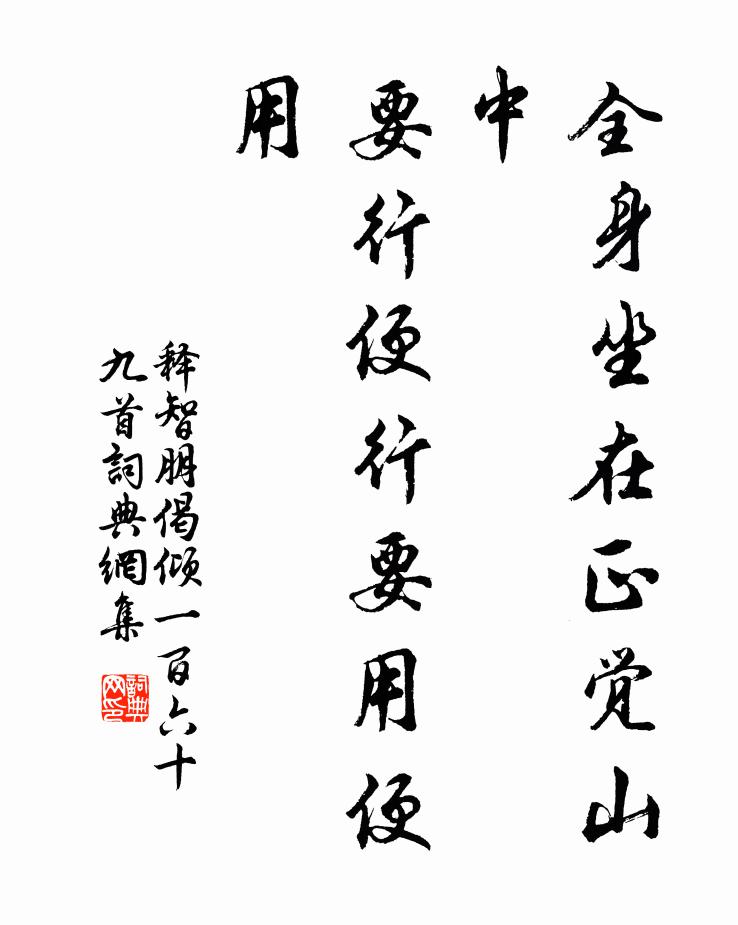 全身坐在正觉山
中
要行便行要用便
用
释智朋偈倾一百六十
九首詞典網集
詞典
网印